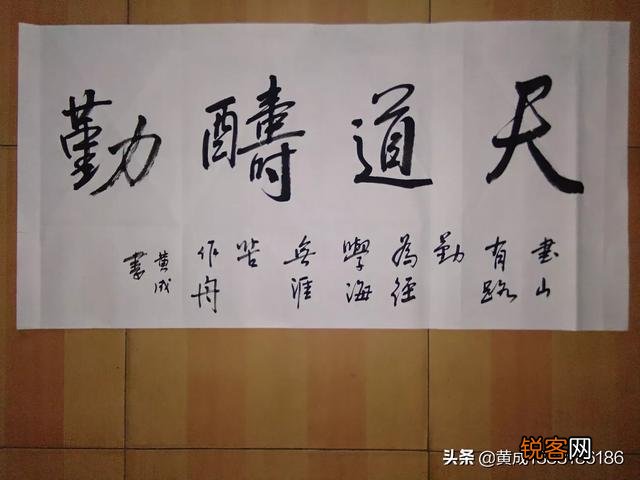 天道醻勤
書山
有路
勤
為徑
學海
無涯
苦
作舟
黄成
書
锐客网
头条 @黄成